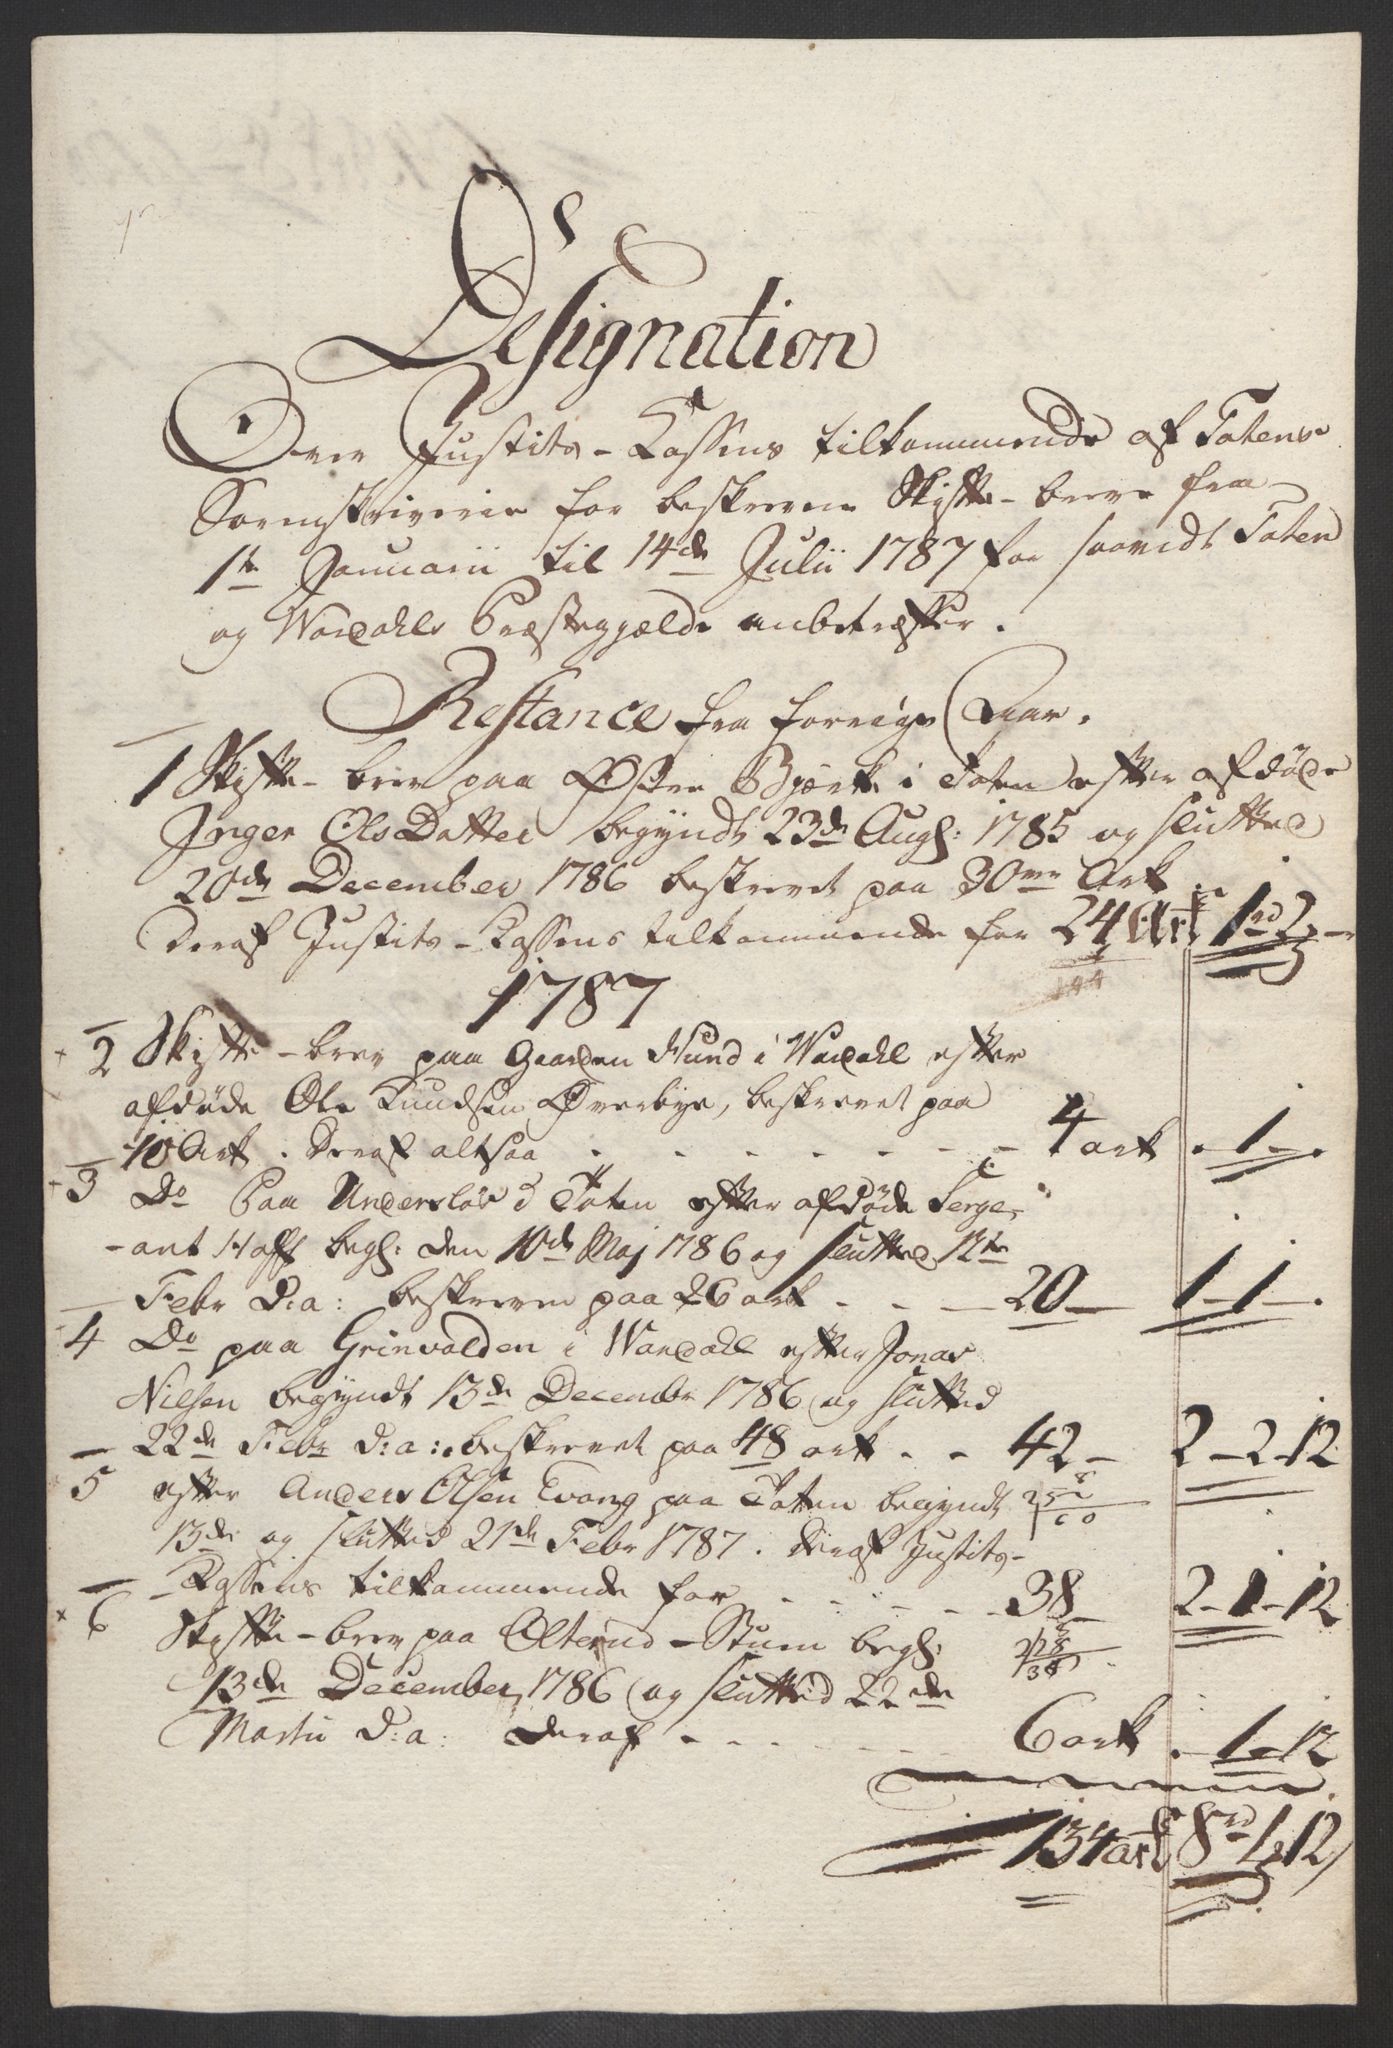 Designation
Over Justits-Cassens tilkommende af Totens
Sorenskriverie for beskrevne Skifte-breve fra
1te Januarii til 14de Julii 1787 for saavidt Toten
og Wardahls Præstegjælde anbetræffer.
Restance fra forrige Aar.
1 Skifte-brev paa Østre Bjørke i Toten efter afdøde
Inger Ols Datter begyndt 23de Augs: 1785 og slutted
20de December 1786 beskrevet paa 30ve Ark
deraf Justits-Cassens tilkommende for 24 Ark 1rd 2
1787
2 Skifte-brev paa Gaarden Hund i Wardahl efter
afdøde Ole Knudsen Øverbye, beskrevet paa
10 Ark. Deraf altsaa 4 ark . 1 - .
3 Do Paa Undersløs i Toten efter afdøde Serge-
-ant Hoff begs: den 10de Maj 1786 og slutted 12te
Febr d: a: beskreven paa 26 ark - - - 20 - 1-1-.
4 Do paa Grinvolden i Wardahl efter Jonas
Nilsen begyndt 13de Decembr 1786 og slutted
22de Febr d: a: beskrevet paa 48 ark - - 42 - 2-2-12
5 efter Anders Olsen Evang paa Toten begyndt
13de og slutted 21de Febr 1787. deraf Justits-
-Cassens tilkommende for - - - 38 - 2-1-12
6 Skifte-brev paa Olterud-Stuen begs:
13de December 1786 og slutted 22de
Martii d: a: deraf - - - 6 ark . 1-12
134 ark 8rd 1 12